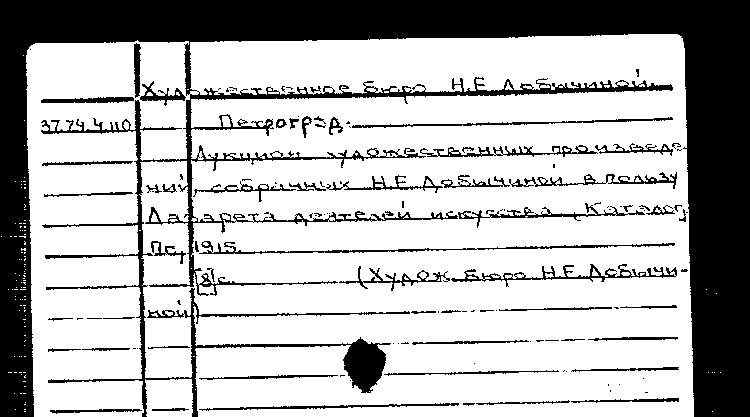 Художественное бюро Н.Е. Добычиной.
37.74.4.110 Петроград.
Аукцион художественных произведе-
ний, собранных Н.Е. Добычиной в пользу
Лазарета деятелей искусства. Каталог.
Пг., 1915.
[8] с. (Худож. бюро Н.Е. Добычи-
ной)